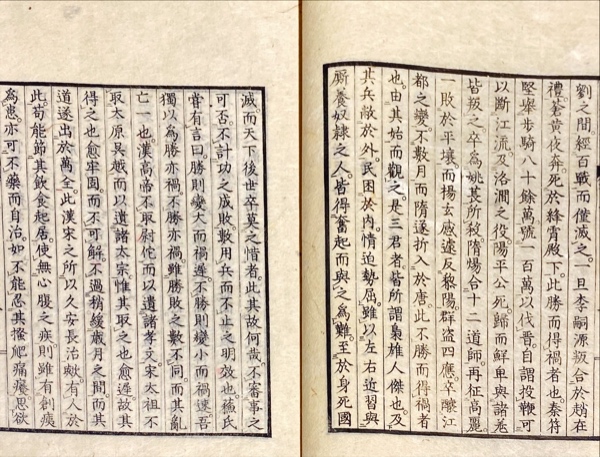 劉之間經百戰而僅滅之一旦李嗣源叛合於趙在
禮蒼黃夜奔死於絳霄殿下此勝而得禍者也秦符
堅舉步騎八十餘萬號一百萬以伐晉自謂投鞭可
以斷江流及洛澗之役陽平公死歸而鮮卑與諸羌
皆叛之卒為姚萇所殺隋煬合十二道師再征高麗
一敗於平壤而楊玄感遽反黎陽群盜四應卒釀江
都之變不數月而隋遂折入於唐此不勝而得禍者
也由其始而觀之是三君者皆所謂梟雄人傑也及
其兵敵於外民困於內情迫勢屈雖以左右近習與
厮養奴隸之人皆得奮起而與之為難至於身死國
滅而天下後世卒莫之惜者此其故何哉不審事之
可否不計功之成敗數用兵而不止之明效也蘇氏
嘗有言曰勝則變大而禍遲不勝則變小而禍速吾
獨以為勝亦禍不勝亦禍雖勝敗之數不同而其亂
亡一也漢高帝不取尉佗而以遺諸孝文宋太祖不
取太原吳越而以遺諸太宗惟其取之也愈遲故其
得之也愈牢固而不可解不過稍緩歲月之間而其
道遂出於萬全此漢宋之所以久安長治歟有人於
此苟能節其飲食起居使無心腹之疾則雖有創痍
為患亦可不藥而自治如不能忍其搔爬痛癢思欲